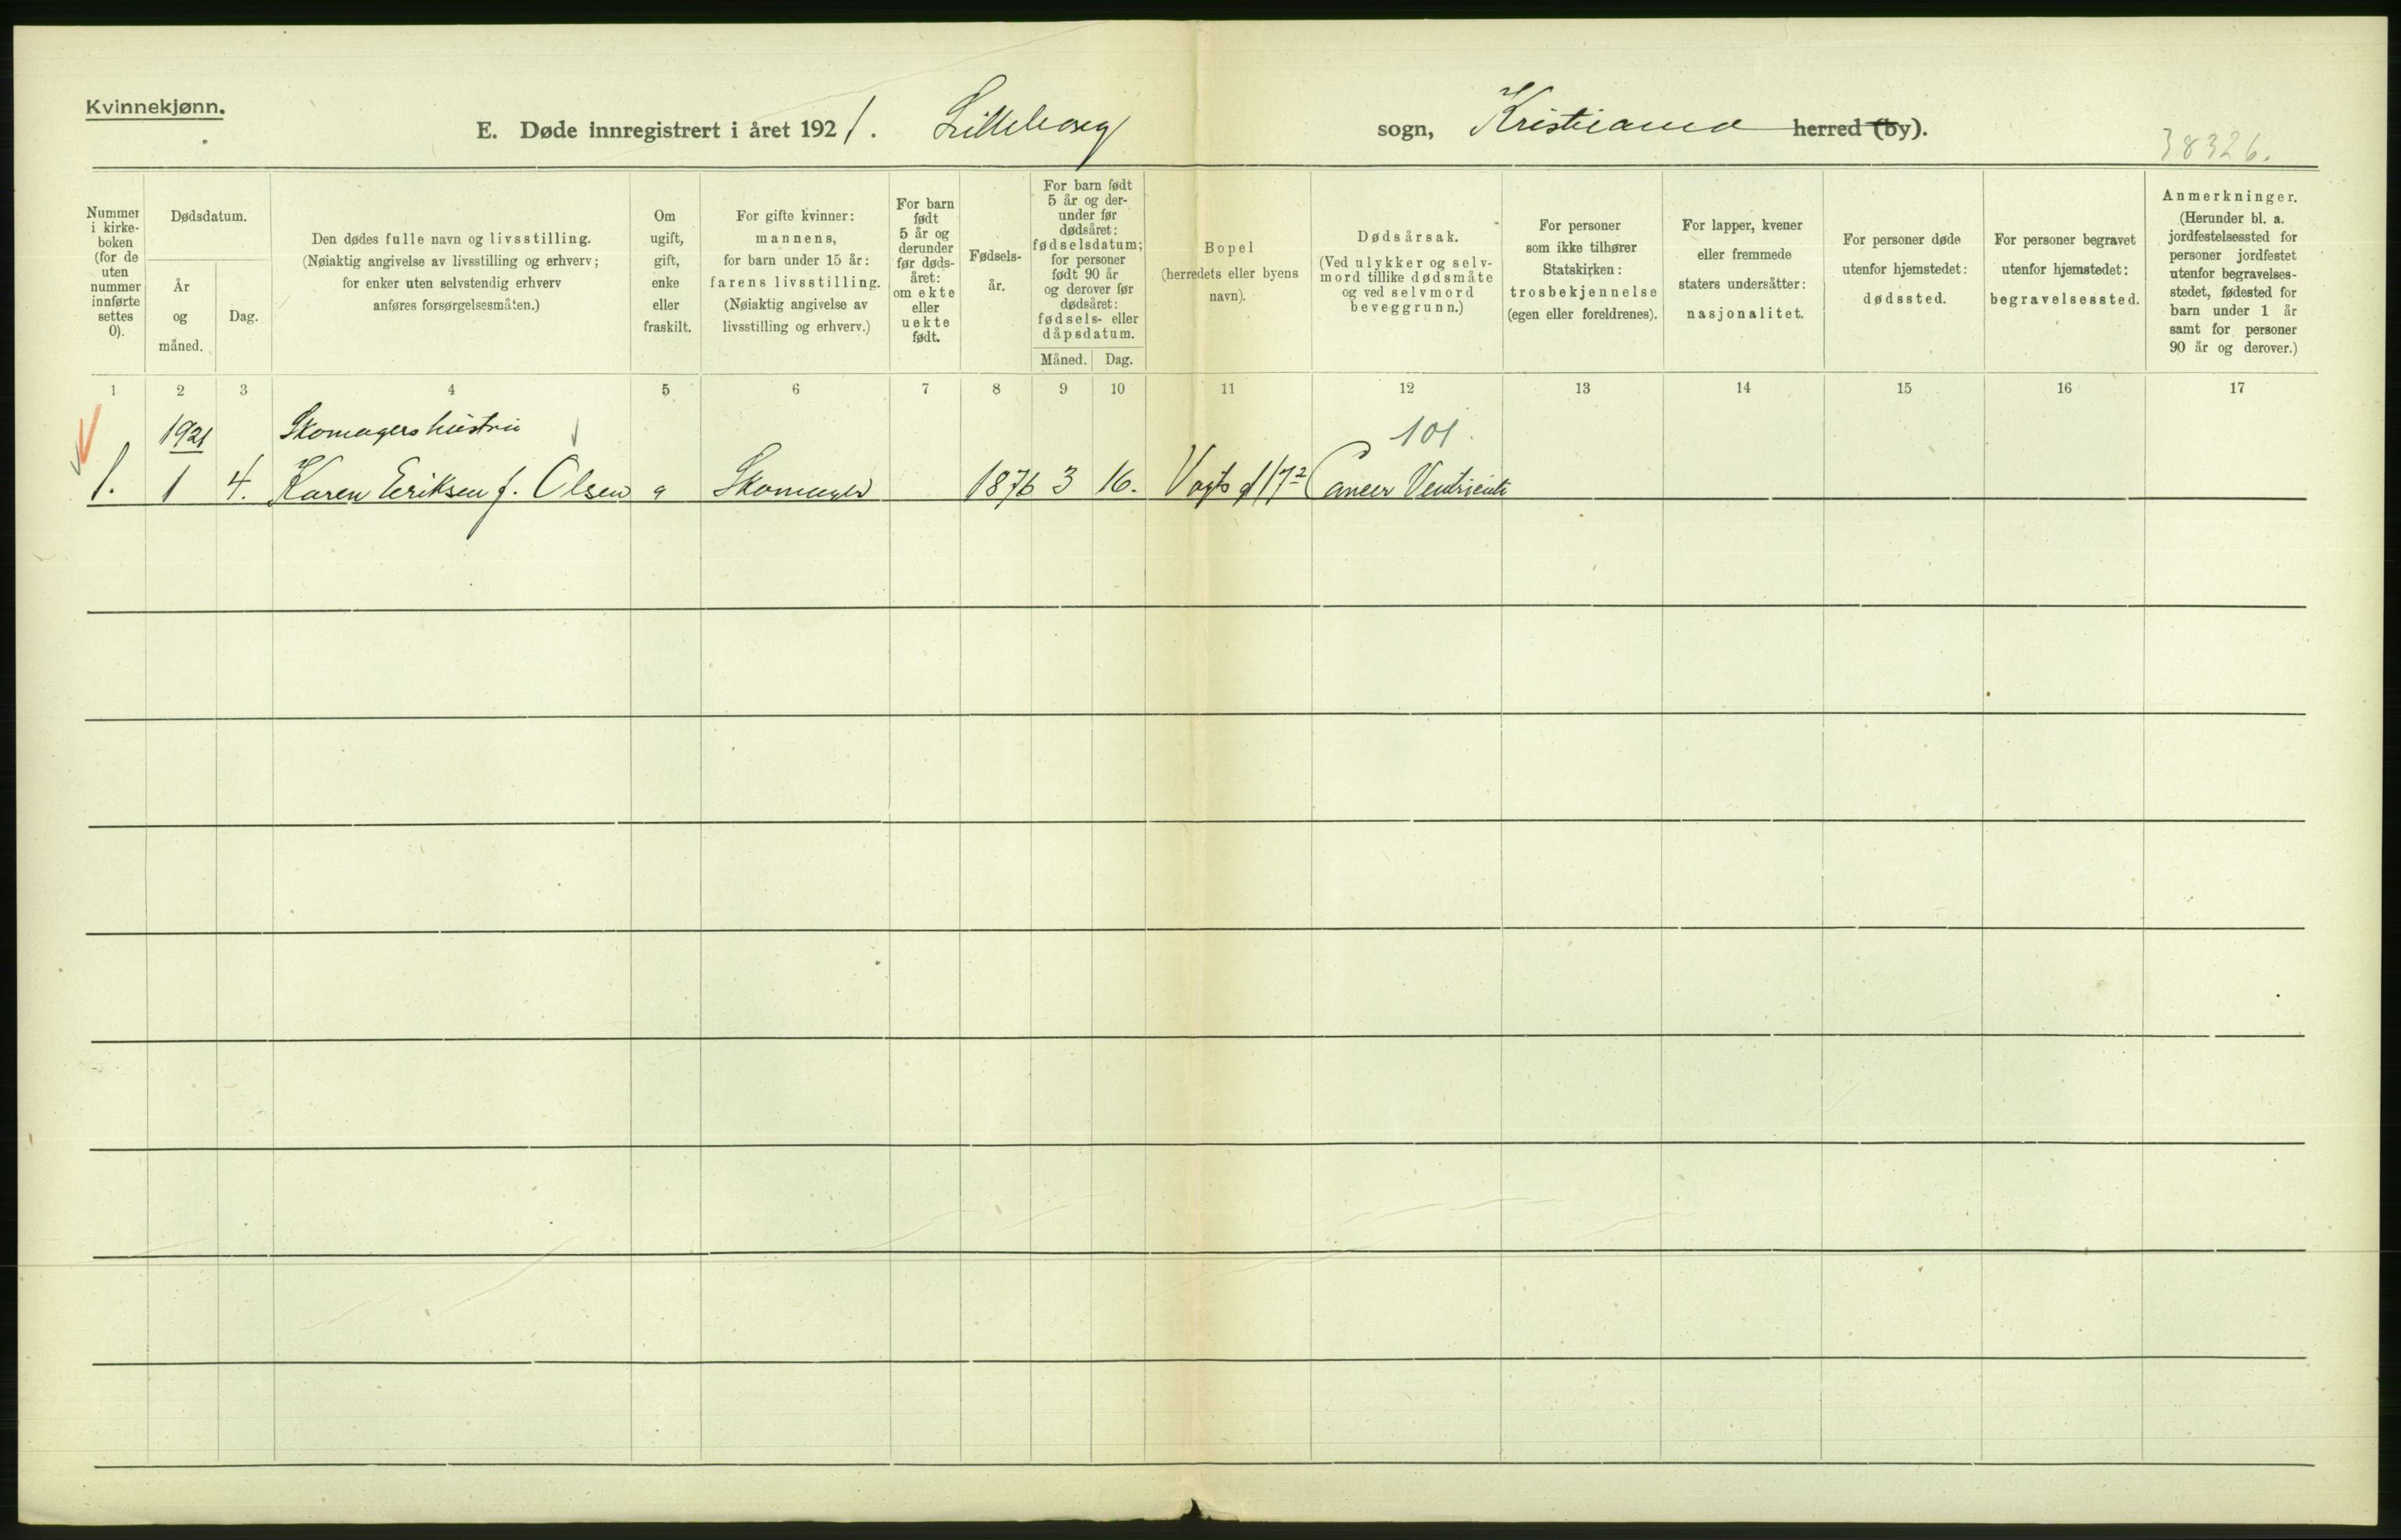 Kvinnekjønn.
E. Døde innregistrert i året 1921. Lilleborg sogn, Kristiania herred (by).
38326.
Nummer i kirke- boken (for de uten nummer innførte settes 0).
Dødsdatum.
År og måned.
Dag.
Den dødes fulle navn og livsstilling.
(Nøiaktig angivelse av livsstilling og erhverv;
for enker uten selvstendig erhverv
anføres forsørgelsesmåten.)
Om ugift, gift, enke eller fraskilt.
For gifte kvinner:
mannens,
for barn under 15 år:
farens livsstilling.
(Nøiaktig angivelse av
livsstilling og erhverv.)
For barn født 5 år og derunder før døds- året: om ekte eller uekte født.
Fødsels- år.
For barn født 5 år og der- under før dødsåret: fødselsdatum; for personer født 90 år og derover før dødsåret: fødsels- eller dåpsdatum.
Måned. Dag.
Bopel
(herredets eller byens
navn).
Dødsårsak.
(Ved ulykker og selv-
mord tillike dødsmåte
og ved selvmord
beveggrunn.)
For personer
som ikke tilhører
Statskirken:
trosbekjennelse
(egen eller foreldrenes).
For lapper, kvener
eller fremmede
staters undersåtter:
nasjonalitet.
For personer døde
utenfor hjemstedet:
dødssted.
For personer begravet
utenfor hjemstedet:
begravelsessted.
Anmerkninger.
(Herunder bl. a.
jordfestelsessted for
personer jordfestet
utenfor begravelses-
stedet, fødested for
barn under 1 år
samt for personer
90 år og derover.)
1 2 3 4 5 6 7 8 9 10 11 12 13 14 15 16 17
1921 Skomagers hustru 101.
1. 1 4. Karen Eriksen f. Olsen g Skomager 1876 3 16. Vogts g 17 2 Cancer Ventriculi